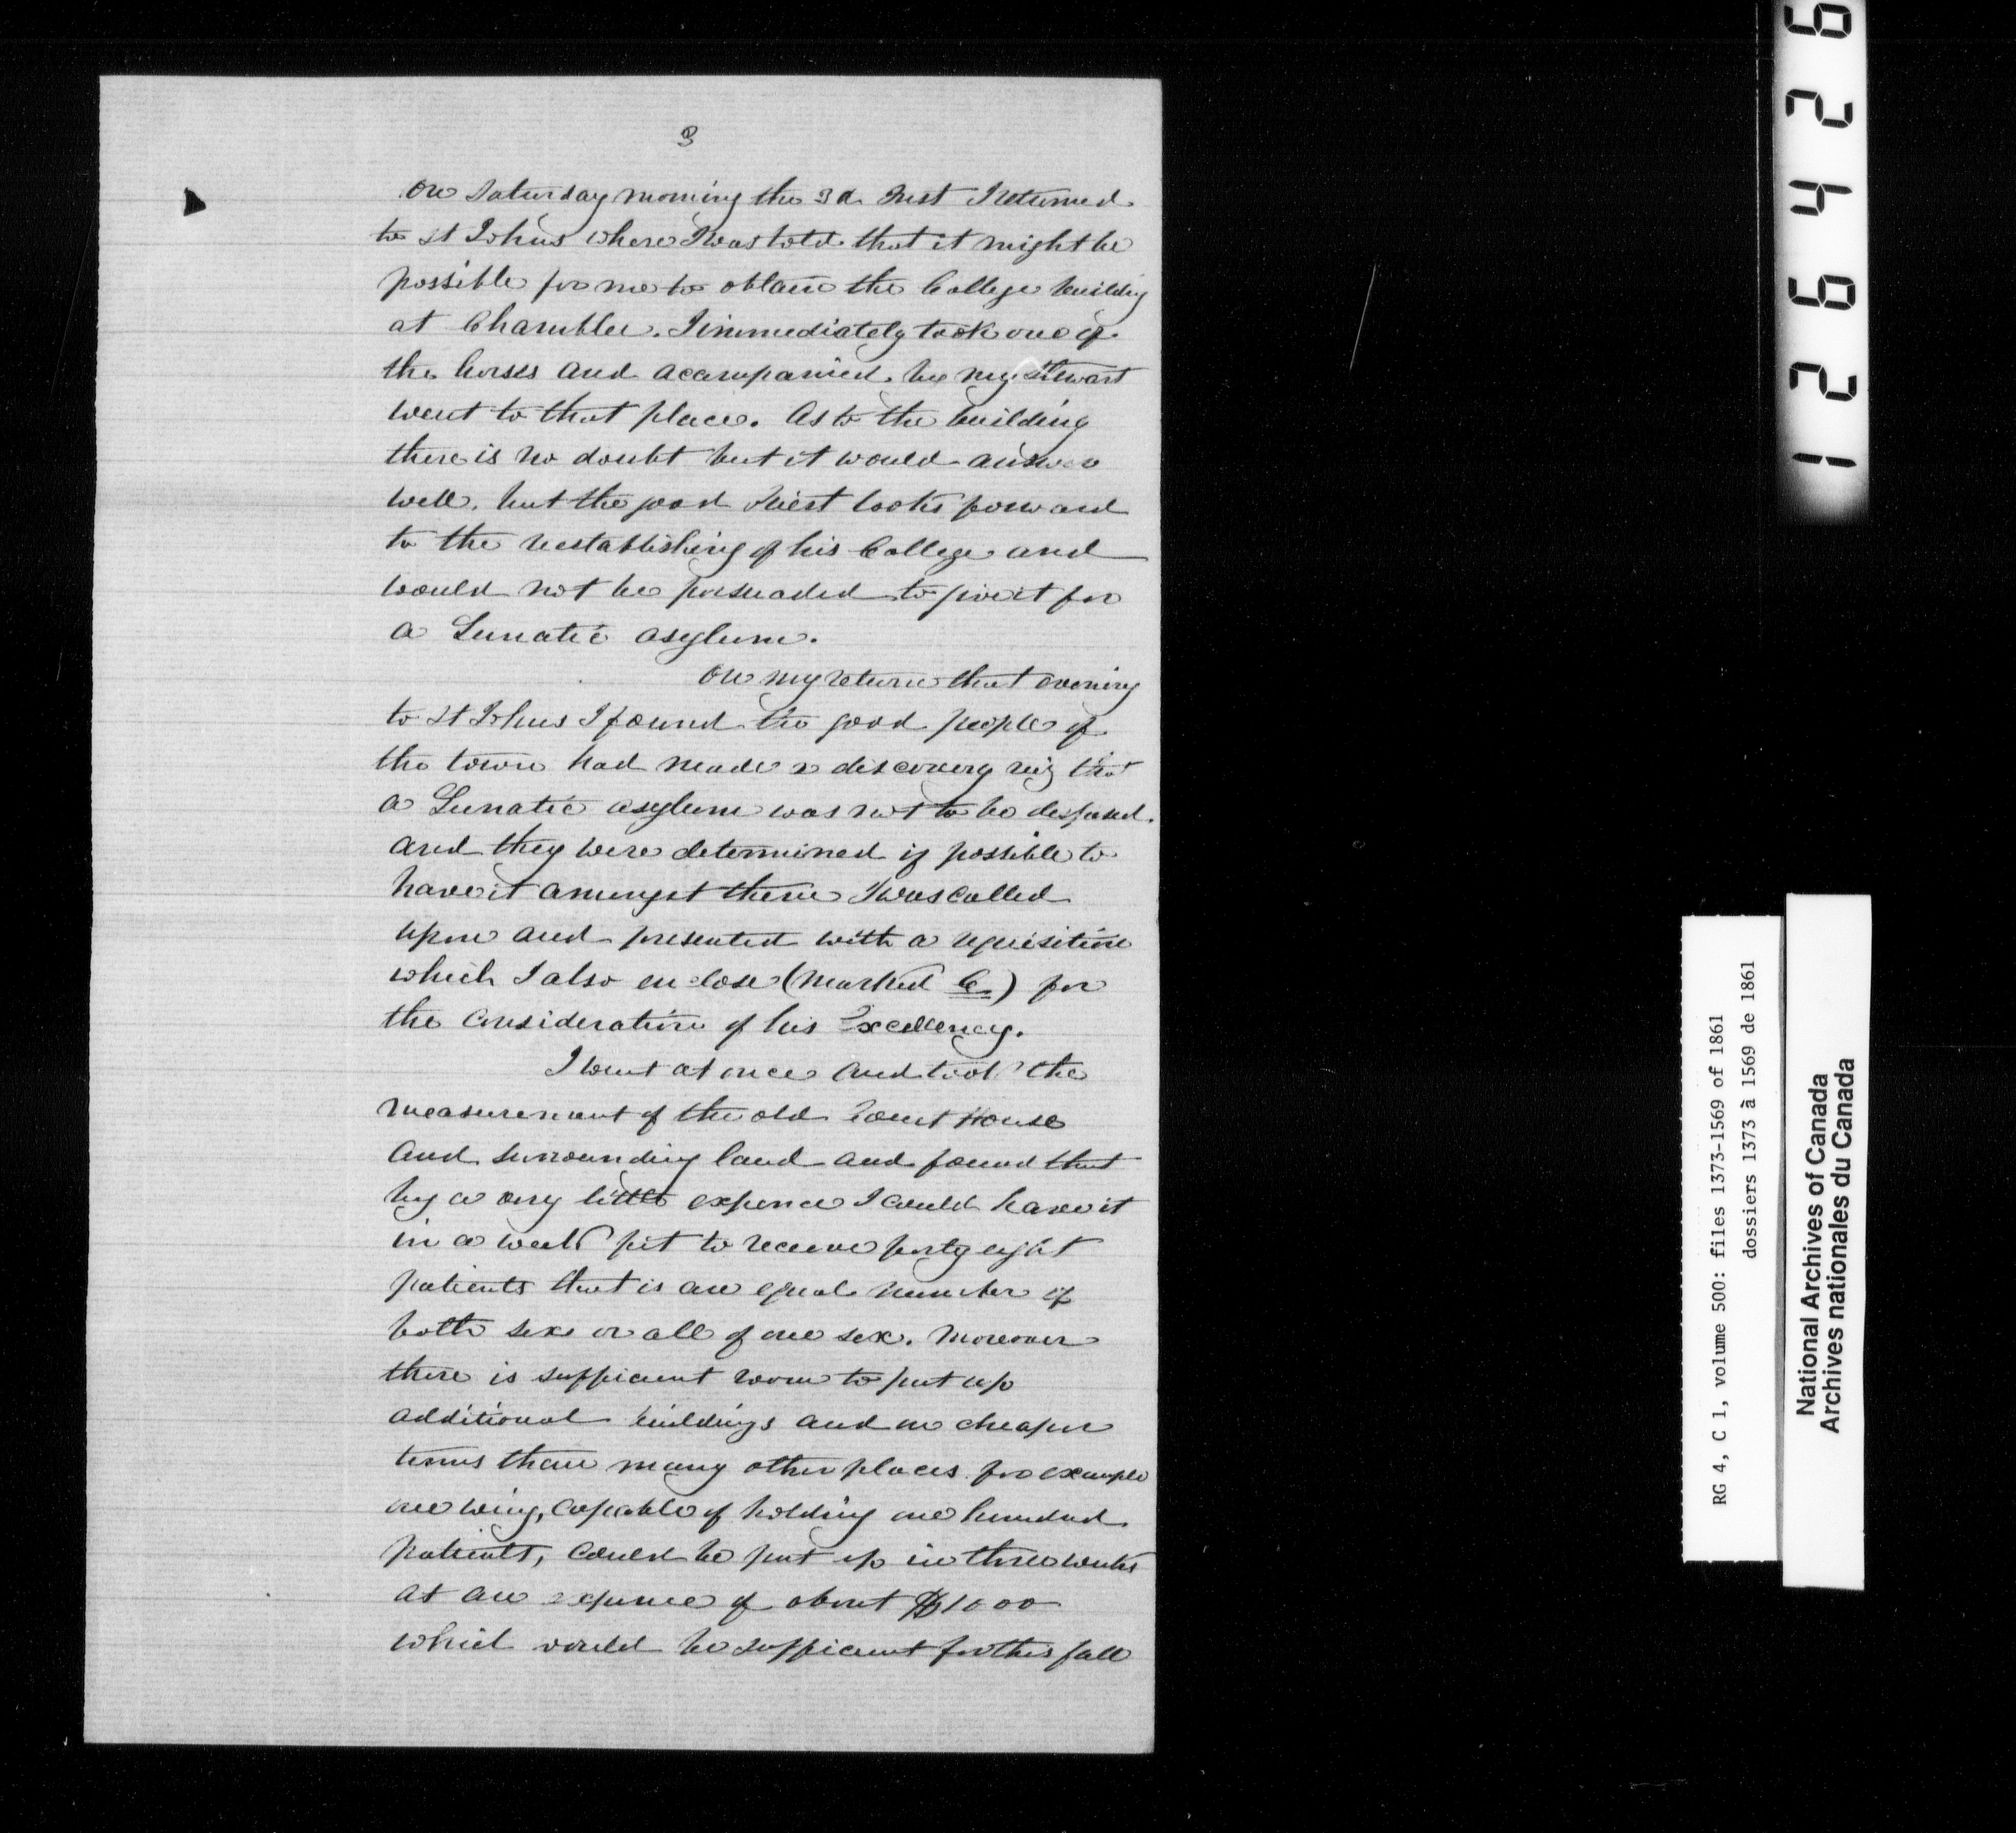 3
On Saturday morning the 3d Inst I returned
to St Johns where I was told that it might be
possible for me to obtain the College building
at Chamblee. I immediately took one of
the horses and accompanied by my Stewart
went to that place. As to the building
there is no doubt but it would answer
well, but the good Priest looks forward
to the reestablishing of his College and
would not be persuaded to give it for
a Lunatic asylum.
On my return that evening
to St Johns I found the good people of
the town had made a discovery viz that
a Lunatic asylum was not to be despised.
and they were determined if possible to
have it amongst them I was called
upon and presented with a requisition
which I also enclose (marked C) for
the consideration of his Excellency.
I went at once and took the
measurement of the old Court House
and surrounding land and found that
by a very little expence I could have it
in a week fit to receive forty eight
patients that is an equal number of
both sexes or all of one sex. Moreover
there is sufficient room to put up
additional buildings and on cheaper
terms than many other places for example
one wing, capable of holding one hundred
patients, could be put up in three weeks
at an expence of about $1000
which would be sufficient for this fall
126426
RG 4, C 1, volume 500: files 1373-1569 of 1861
dossiers 1373 à 1569 de 1861
National Archives of Canada
Archives nationales du Canada